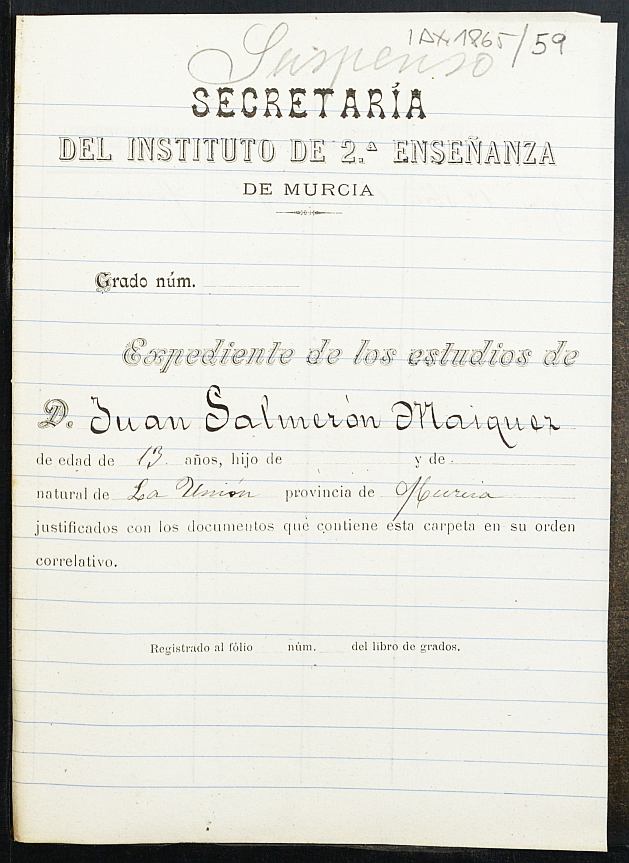 Suspenso
IAX1865/59
SECRETARÍA
DEL INSTITUTO DE 2.ª ENSEÑANZA
DE MURCIA
Grado núm.
Expediente de los estudios de
D. Juan Salmerón Maiquez
de edad de 13 años, hijo de y de
natural de La Unión provincia de Murcia
justificados con los documentos que contiene esta carpeta en su orden
correlativo.
Registrado al fólio núm. del libro de grados.